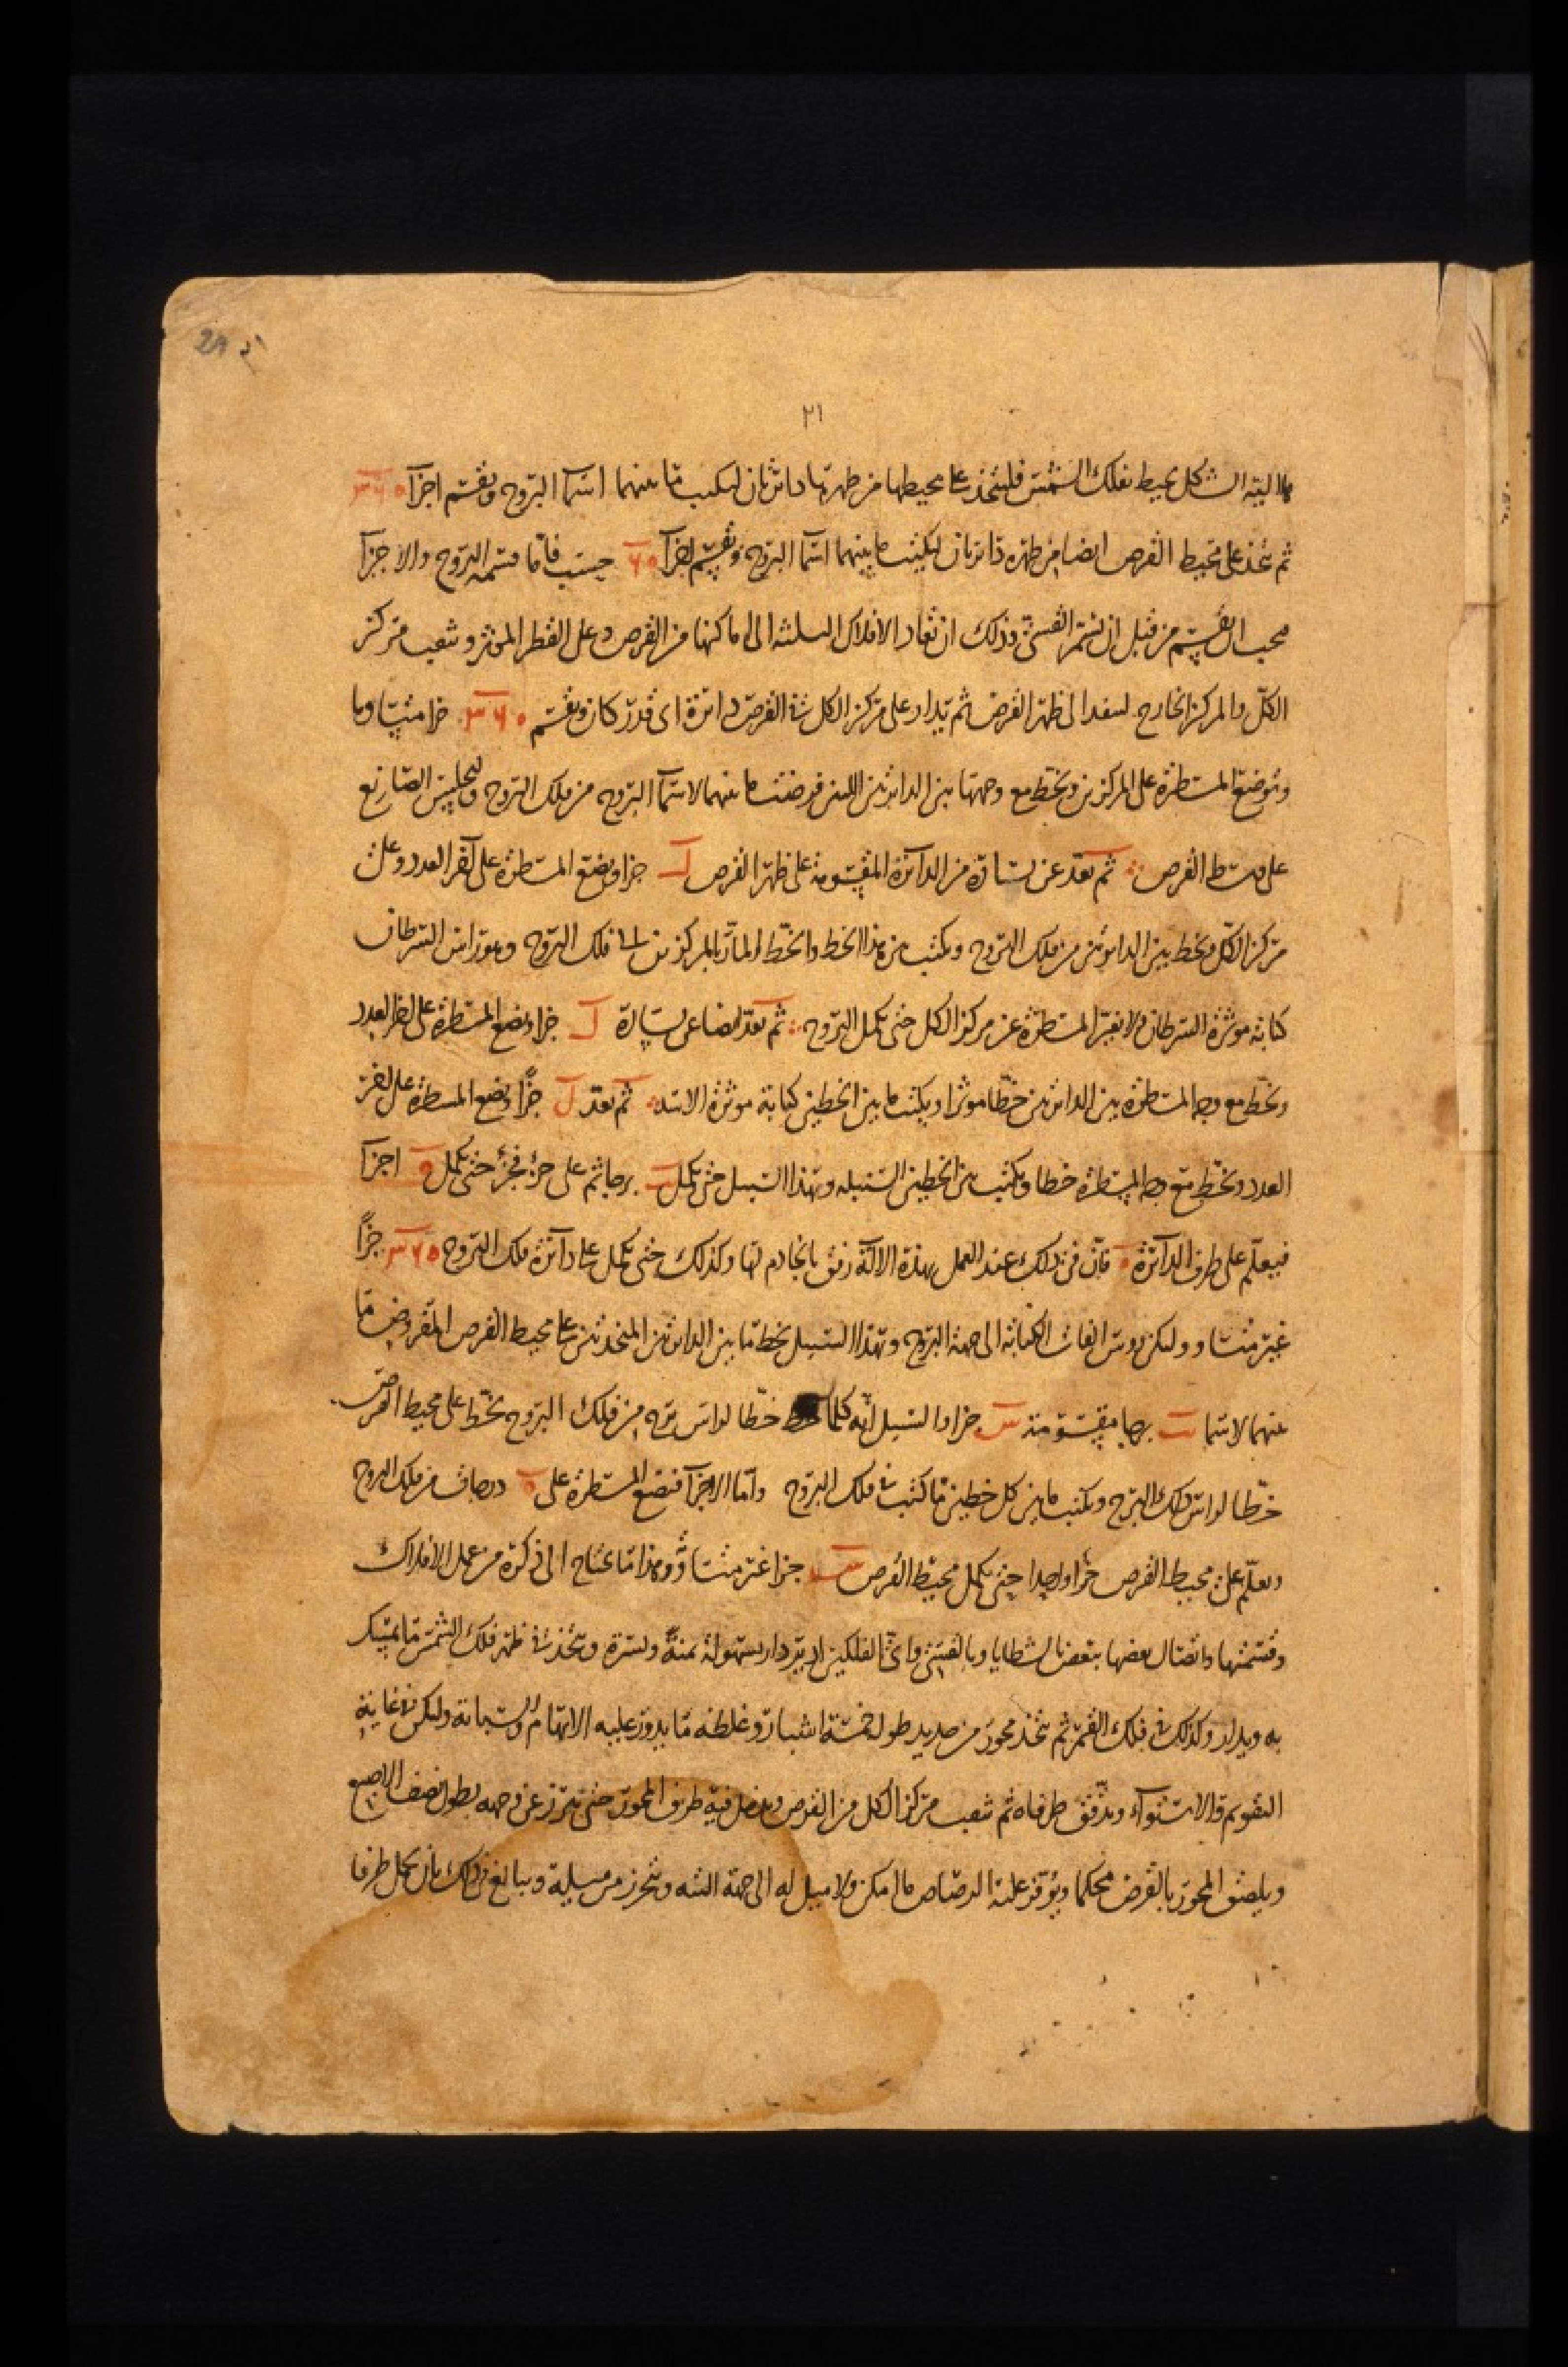 21
٢١
هلالية الشكل يحيط بفلك الشمس فليتخذ على محيطها من ظهرها دائرتان ليكتب ما بينهما اسما البروج وتقسم اجزآ ٣٦٥
ثم يتخذ على محيط القرص ايضا من ظهره دائرتان ليكتب ما بينهما اسما البروج وتقسم اجزآ ٦٥ حسب فاما قسمة البروج والاجزآ
فيجب ان تقسم من قبل ان تسمر القسي وذلك ان تعاد الافلاك الثلثة الى اماكنها من القرص وعلى القطر الموثر وثقب مركز
الكل والمركز الخارج لينفد الى ظهر القرص ثم تدار على مركز الكل في القرص دائرة اى قدر كان وتقسم ٣٦٥ جزا متساويا
وتوضع المسطرة على المركزين ويخط مع وجهها بين الدائرتين اللتين فرضتا ما بينهما لاسما البروج من فلك البروج وليجلس الصانع
على وسط القرص ثم تعد عن يساره من الدائرة المقسومة على ظهر القرص ل جزا ويضع المسطرة على آخر العدد وعلى
مركز الكل ويخط بين الدائرتين من فلك البروج ويكتب بين هذا الخط والخط المار بالمركزين في فلك البروج وهو راس السرطان
كتابة موثرة السرطان ولا يغير المسطرة عن مركز الكل حتى تكمل البروج ثم تعد ايضا عن يساره ل جزا ويضع المسطرة على اخر العدد
ويخط مع وجه المسطرة بين الدائرتين خطا موثرا ويكتب ما بين الخطين كتابة موثرة الاسد ثم تعد ل جزًا ويضع المسطرة على اخر
العدد ويخط مع وجه المسطرة خطا ويكتب بين الخطين السنبله وبهذا السبيل حتى تكمل يب برجا ثم على جزء فجزء حتى تكمل ه اجزآ
فيعلم على طرف الدائرة ه فان في ذلك عند العمل بهذه الالة رفق بالخادم لها وكذلك حتى تكمل على دائرة فلك البروج ٣٦٥ جزًا
غير متساو وليكن روس الفات الكتابة الى جهة البروج وبهذا السبيل يخط ما بين الدائرتين المتخذتين على محيط القرص المفروض ما
بينهما لاسما يب برجا مقسومة س جزا والسبيل انه كلما خط خطا لراس برج من فلك البروج يخط على محيط القرص
خطا لراس ذلك البرج ويكتب ما بين كل خطين ما كتب في فلك البروج واما الاجزآ فتضع المسطرة على ه درجات من فلك البروج
ويعلم على محيط القرص جزا واحدا حتى تكمل محيط القرص س جزا غير متساو وهذا ما يحتاج الى ذكره من عمل الافلاك
وقسمتها واتصال بعضها ببعض بالشظايا وبالقسي واى الفلكين اريد دار بسهولة يمنةً ويسرة ويتخذ في ظهر فلك الشمس ما يمسك
به ويدار وكذلك في فلك القمر ثم يتخذ محور من حديد طوله خمسة اشبار وغلظه ما يدور عليه الابهام والسبابة وليكن في غاية
التقويم والاستوآء ويدقق طرفاه ثم ثقب مركز الكل من القرص ويدخل فيه طرف المحور حتى يبرز عن وجهه بطول نصف الاصبع
ويلصق المحور بالقرص محكما ويوقر عليه الرصاص ما امكن ولا ميل له الى جهة البتة ويتحرز من ميله ويبالغ في ذلك بان يجعل طرفا